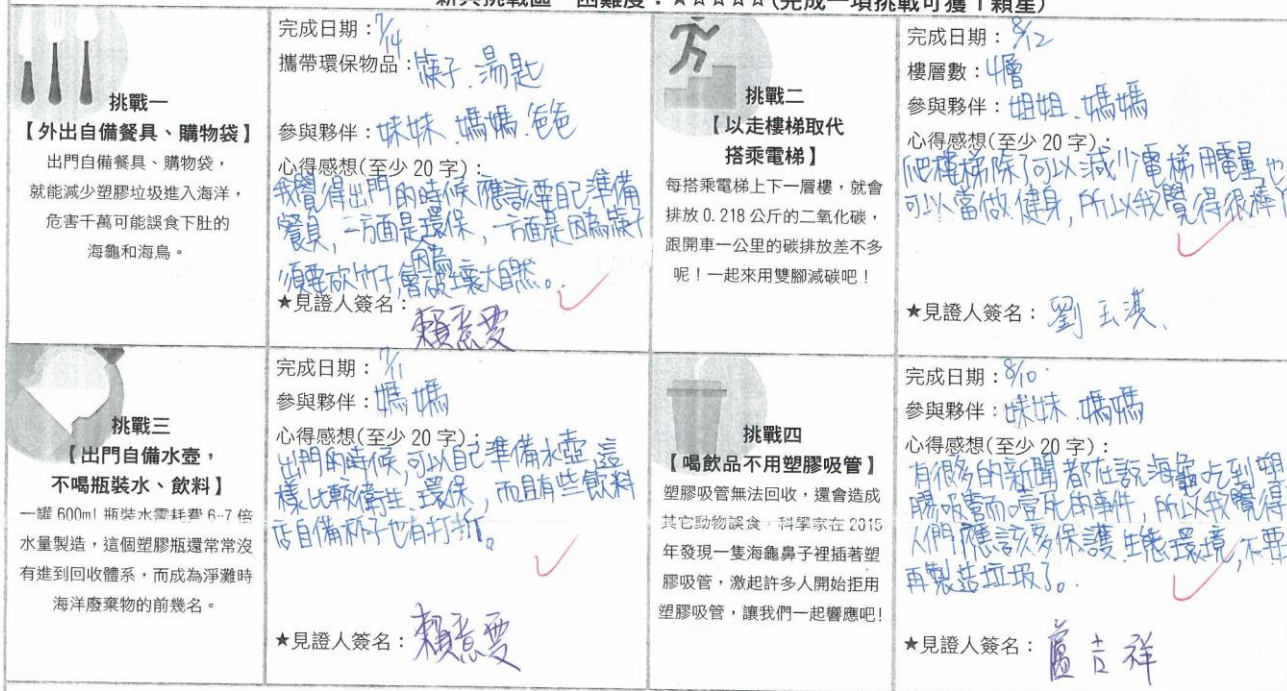 新興挑戰區 困難度：★★★★★(完成一項挑戰可獲1顆星)
挑戰一
【外出自備餐具、購物袋】
出門自備餐具、購物袋，
就能減少塑膠垃圾進入海洋，
危害千萬可能誤食下肚的
海龜和海鳥。
完成日期：7/14
攜帶環保物品：筷子、湯匙
參與夥伴：妹妹、媽媽、爸爸
心得感想(至少 20 字)：
我覺得出門的時候應該要自己準備
餐具，一方面是環保，一方面是因為筷子
須要砍竹子，因為會破壞大自然。
★見證人簽名：
賴意雯
挑戰二
【以走樓梯取代
搭乘電梯】
每搭乘電梯上下一層樓，就會
排放 0.218 公斤的二氧化碳，
跟開車一公里的碳排放差不多
呢！一起來用雙腳減碳吧！
完成日期：8/12
樓層數：4層
參與夥伴：姐姐、媽媽
心得感想(至少 20 字)：
爬樓梯除了可以減少電梯用電量也
可以當做健身，所以我覺得很棒
★見證人簽名：劉玉淇
挑戰三
【出門自備水壺，
不喝瓶裝水、飲料】
一罐 600ml 瓶裝水需耗費 6~7 倍
水量製造，這個塑膠瓶還常常沒
有進到回收體系，而成為淨灘時
海洋廢棄物的前幾名。
完成日期：7/11
參與夥伴：媽媽
心得感想(至少 20 字)：
出門的時候，可以自己準備水壺，這
樣比較衛生、環保，而且有些飲料
店自備杯子也有打折。
★見證人簽名：賴意雯
挑戰四
【喝飲品不用塑膠吸管】
塑膠吸管無法回收，還會造成
其它動物誤食，科學家在 2015
年發現一隻海龜鼻子裡插著塑
膠吸管，激起許多人開始拒用
塑膠吸管，讓我們一起響應吧!
完成日期：8/10
參與夥伴：妹妹、媽媽
心得感想(至少 20 字)：
有很多的新聞都在說海龜吃到塑
膠吸管而噎死的事件，所以我覺得
人們應該多保護生態環境，不要
再製造垃圾了。
★見證人簽名：盧吉祥